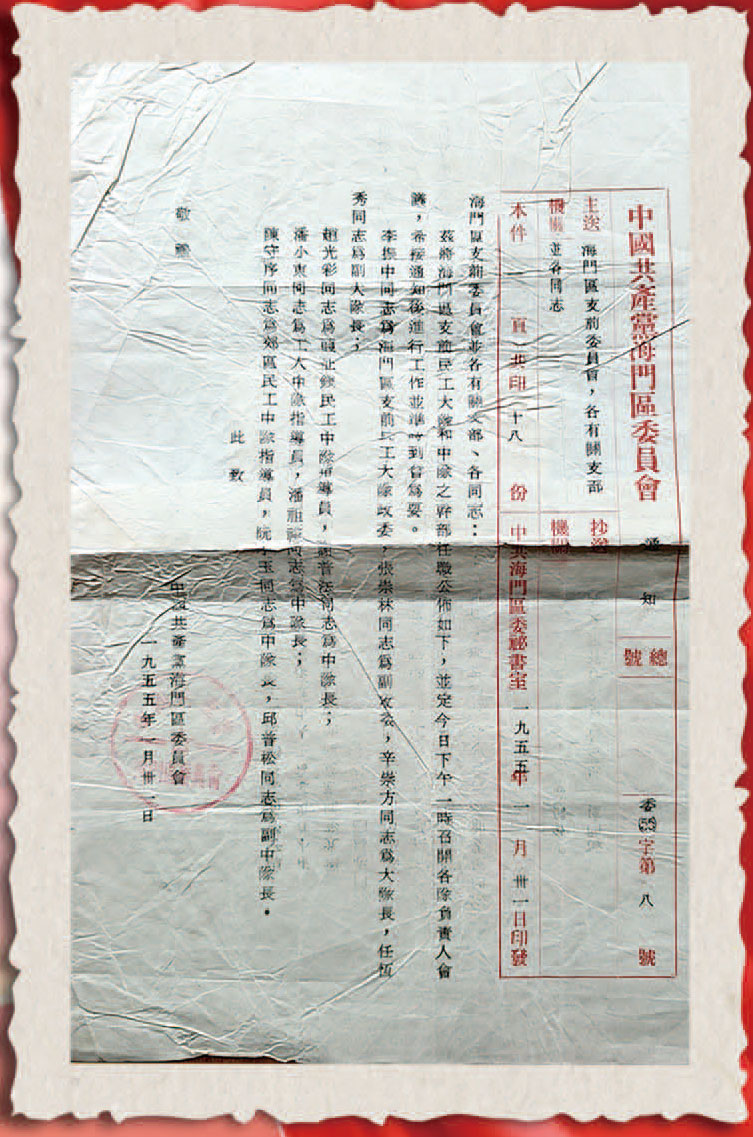 中國共產黨海門區委員會 通知 總號 委(55)字第八號
主送機關 海門區支前委員會，各有關支部並各同志 抄送機關
本件一頁共印十八份 中共海門區委祕書室 一九五五年一月卅一日印發
海門區支前委員會並各有關支部、各同志：
茲將海門區支前民工大隊和中隊之幹部任職公佈如下，並定今日下午一時召開各隊負責人會
議，希接通知後進行工作並準時到會為要。
李振中同志為海門區支前民工大隊政委，張崇林同志為副政委，辛崇方同志為大隊長，任恆
秀同志為副大隊長；
趙光彩同志為 民工中隊指導員， 同志為中隊長；
潘小東同志為工人中隊指導員，潘祖 同志為中隊長；
陳守序同志為郊區民工中隊指導員，阮 玉同志為中隊長，邱普松同志為副中隊長。
此致
敬禮
中國共產黨海門區委員會
一九五五年一月卅一日